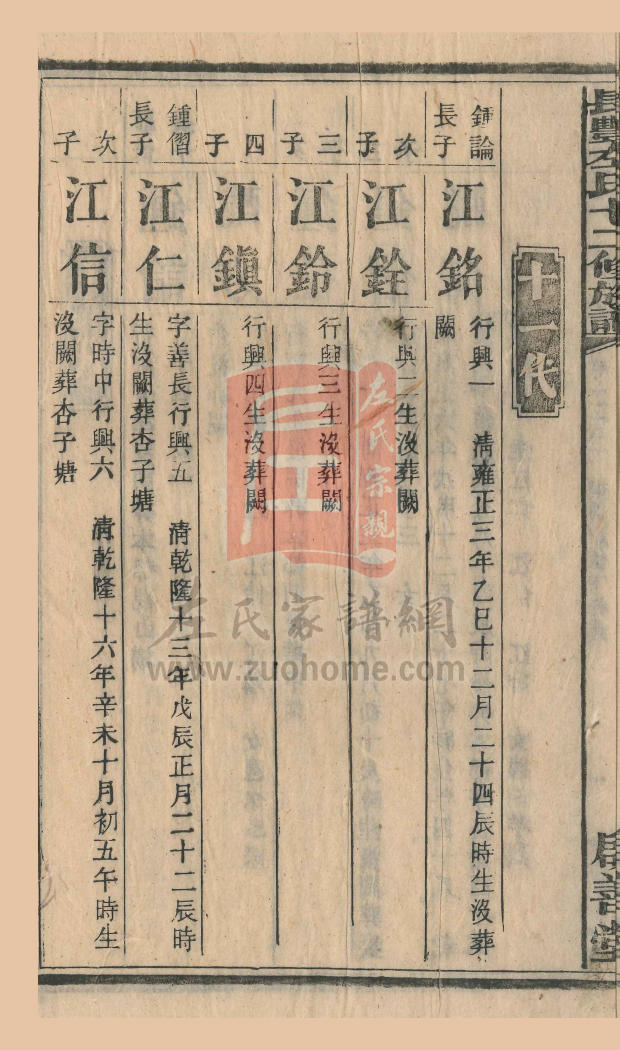 十一代
鍾論
長子
江銘
行興一　清雍正三年乙巳十二月二十四辰時生沒葬
闕
次子
江銓
行興二生沒葬闕
三子
江鈴
行興三生沒葬闕
四子
江鎭
行興四生沒葬闕
鍾熠
長子
江仁
字善長行興五　清乾隆十三年戊辰正月二十二辰時
生沒闕葬杏子塘
次子
江信
字時中行興六　清乾隆十六年辛未十月初五午時生
沒闕葬杏子塘
左氏宗親
左氏家譜網
www.zuohome.com